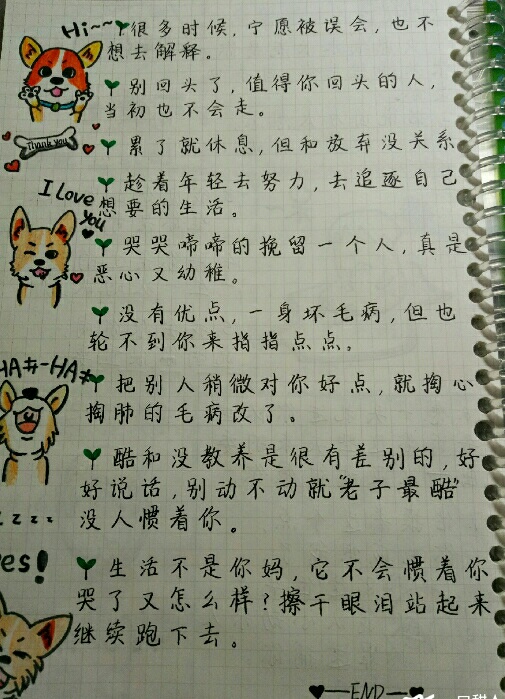 Hi~~
很多时候,宁愿被误会,也不
想去解释。
别回头了,值得你回头的人,
当初也不会走。
Thank you
累了就休息,但和放弃没关系
趁着年轻去努力,去追逐自己
I love you
想要的生活。
哭哭啼啼的挽留一个人,真是
恶心又幼稚。
没有优点,一身坏毛病,但也
轮不到你来指指点点。
把别人稍微对你好点,就掏心
掏肺的毛病改了。
酷和没教养是很有差别的,好
好说话,别动不动就"老子最酷"
zzzz
没人惯着你。
生活不是你妈,它不会惯着你
哭了又怎么样?擦干眼泪站起来
继续跑下去。
END